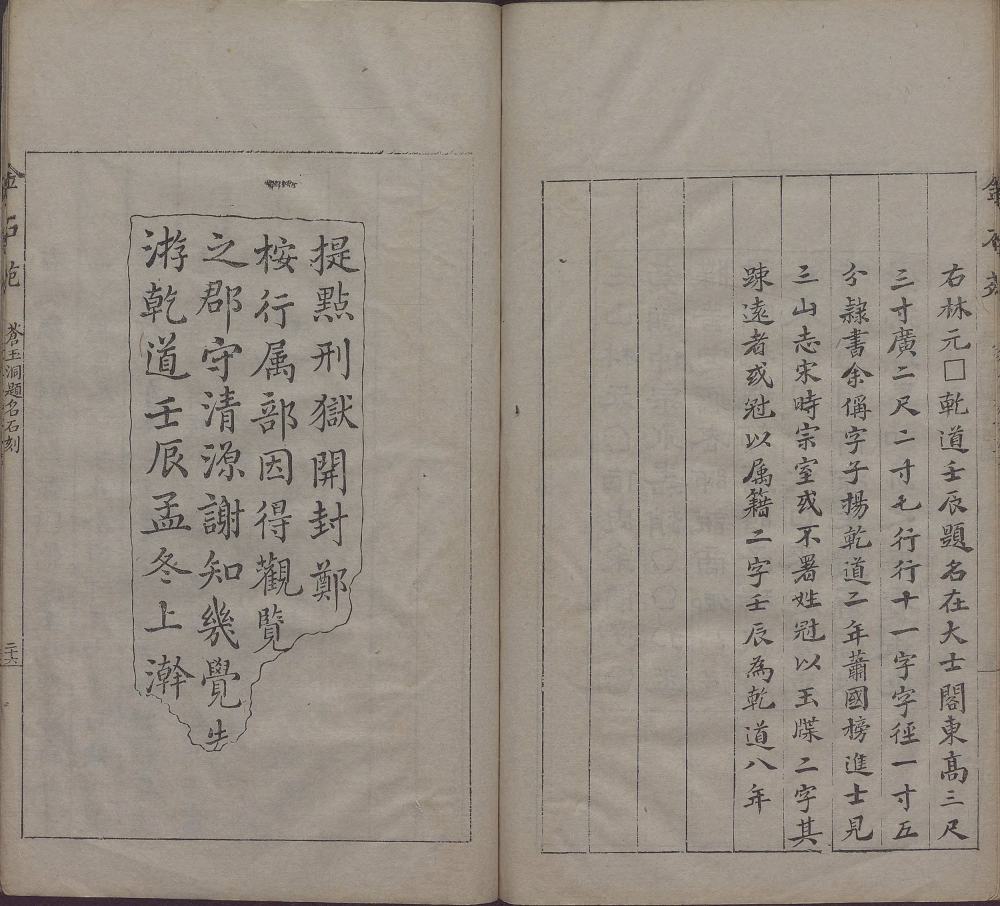 右林元□乾道壬辰題名在大士閣東高三尺
三寸廣二尺二寸七行行十一字字徑一寸五
分隸書余偁字子揚乾道二年蕭國榜進士見
三山志宋時宗室或不署姓冠以玉牒二字其
踈遠者或冠以属籍二字壬辰為乾道八年
提點刑獄開封鄭
桉行属部因得觀覽
之郡守清源謝知幾覺
游乾道壬辰孟冬上澣
金石苑
蒼玉洞題名石刻
二十六